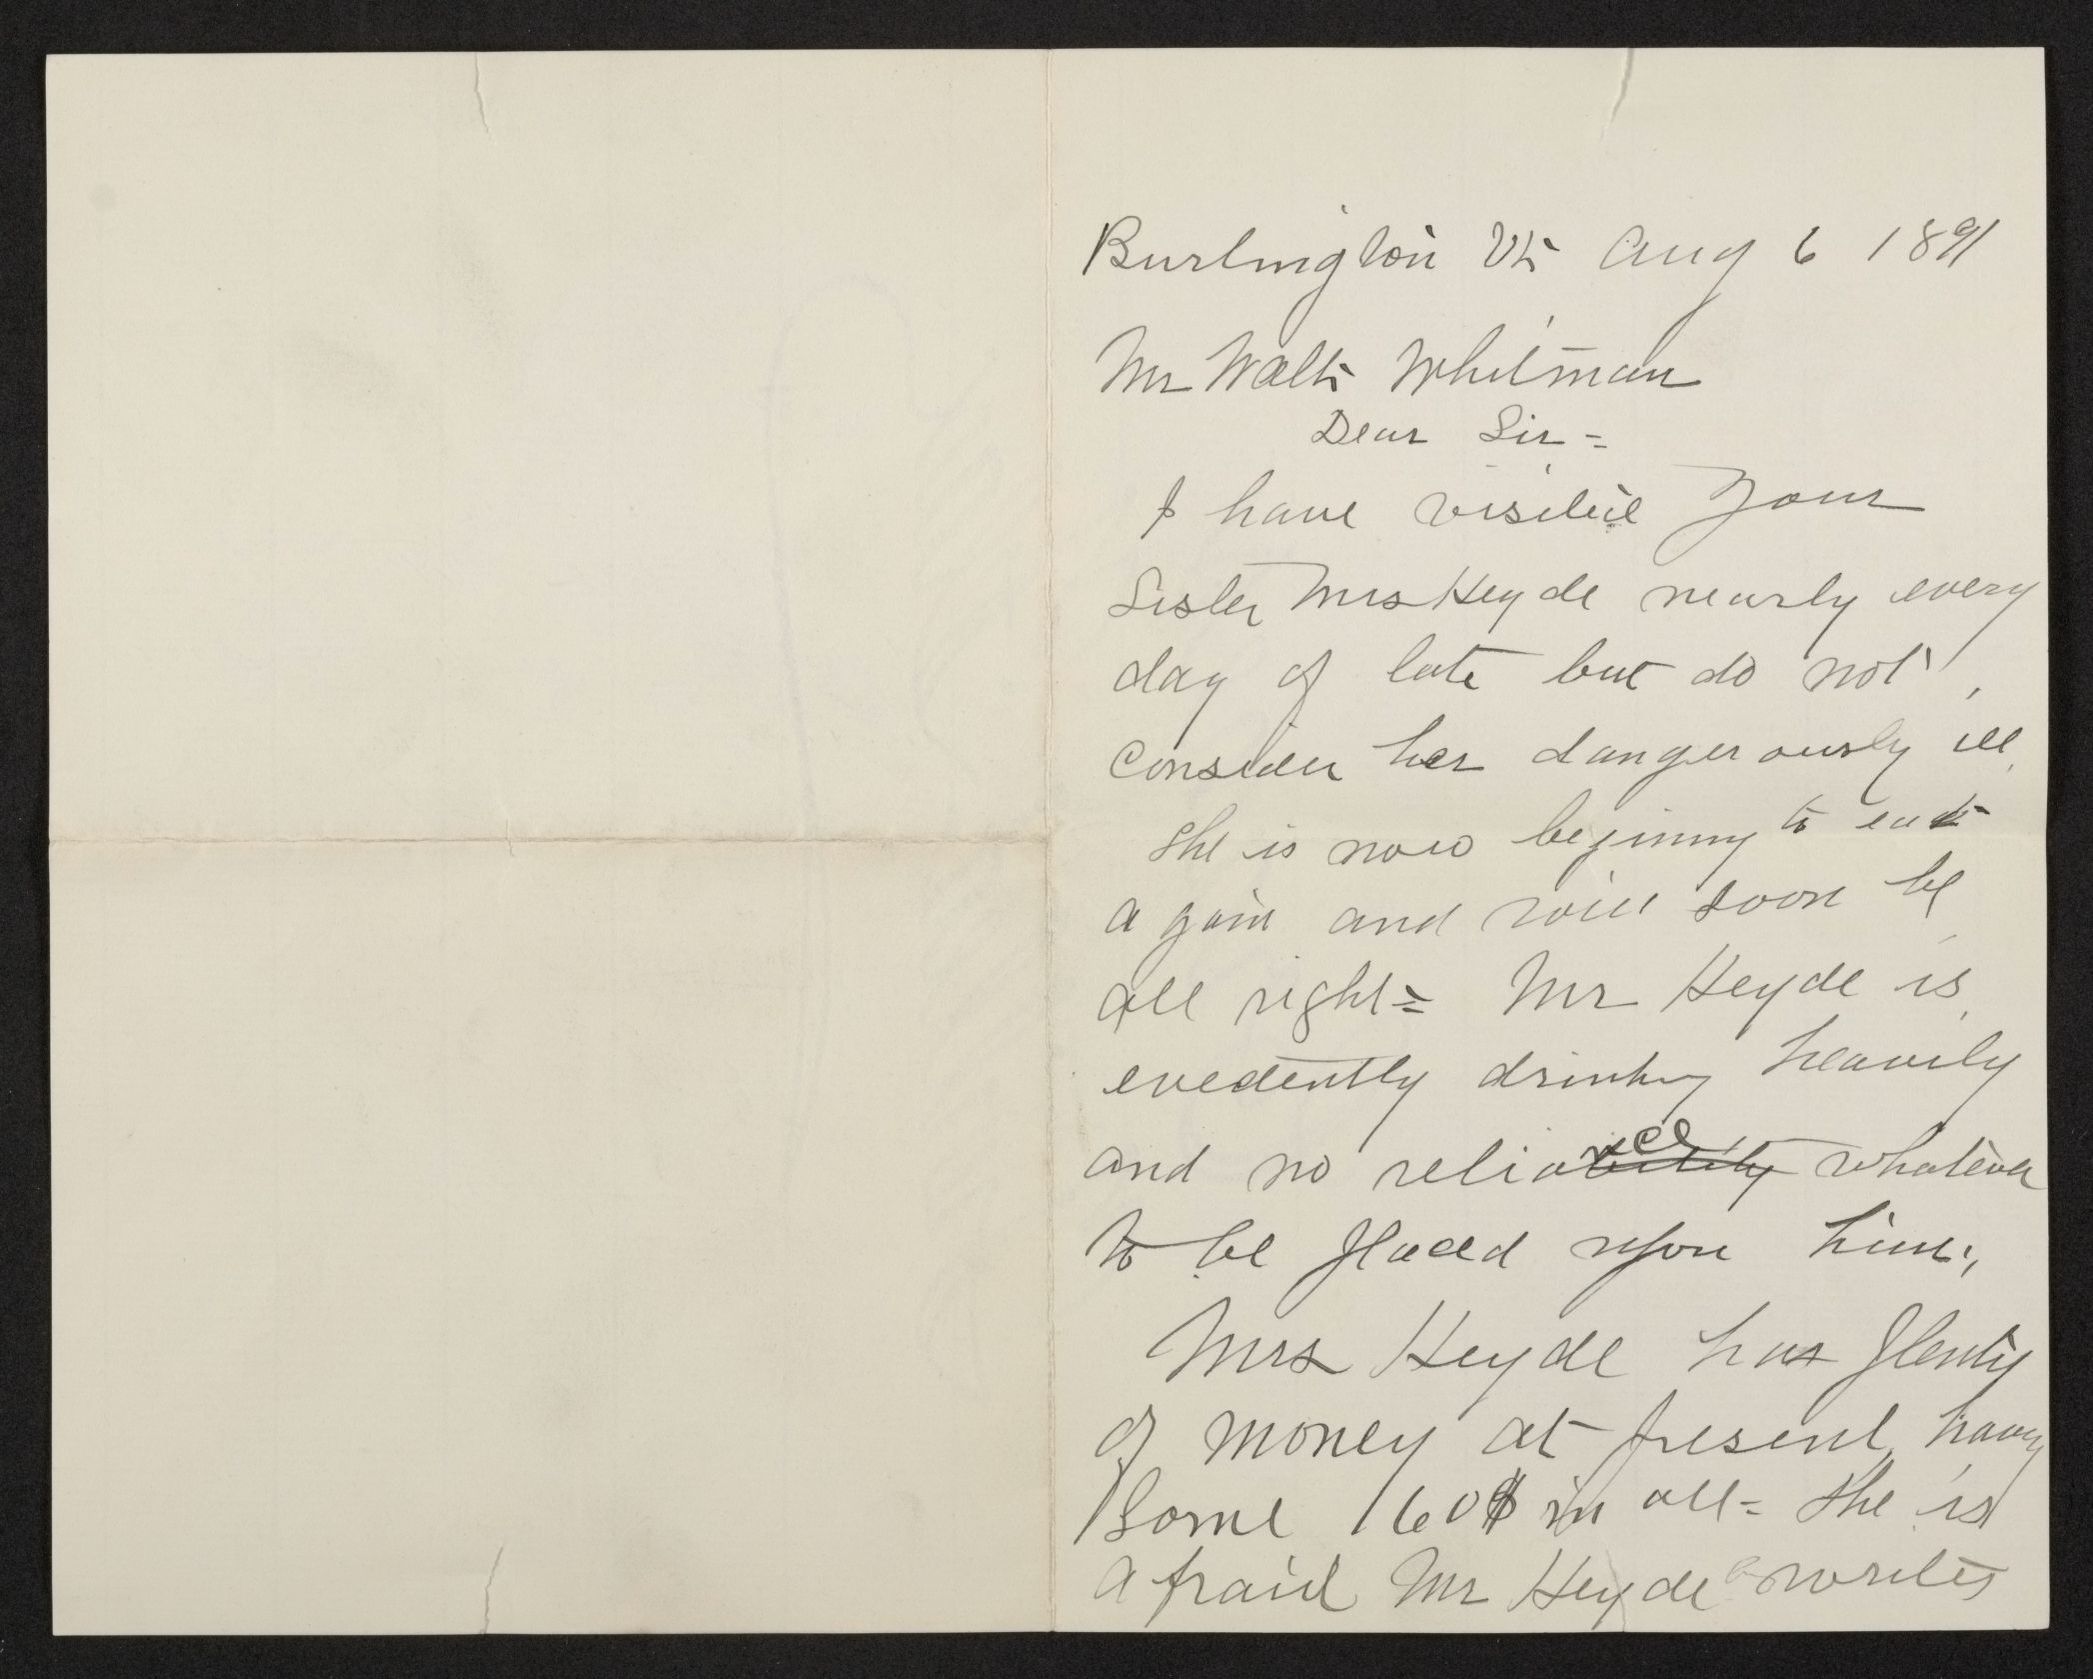 Burlington Vt Aug 6 1891
Mr Walt Whitman
Dear Sir =
I have visited your
Sister Mrs Heyde nearly every
day of late but do not
consider her dangerously ill.
She is now beginning to eat
again and will soon be
all right = Mr Heyde is
evedently drinking heavily
and no reliance whatever
to be placed upon him,
Mrs Heyde has plenty
of money at present, having
Some 160$ in all = She is
afraid Mr Heyde writes